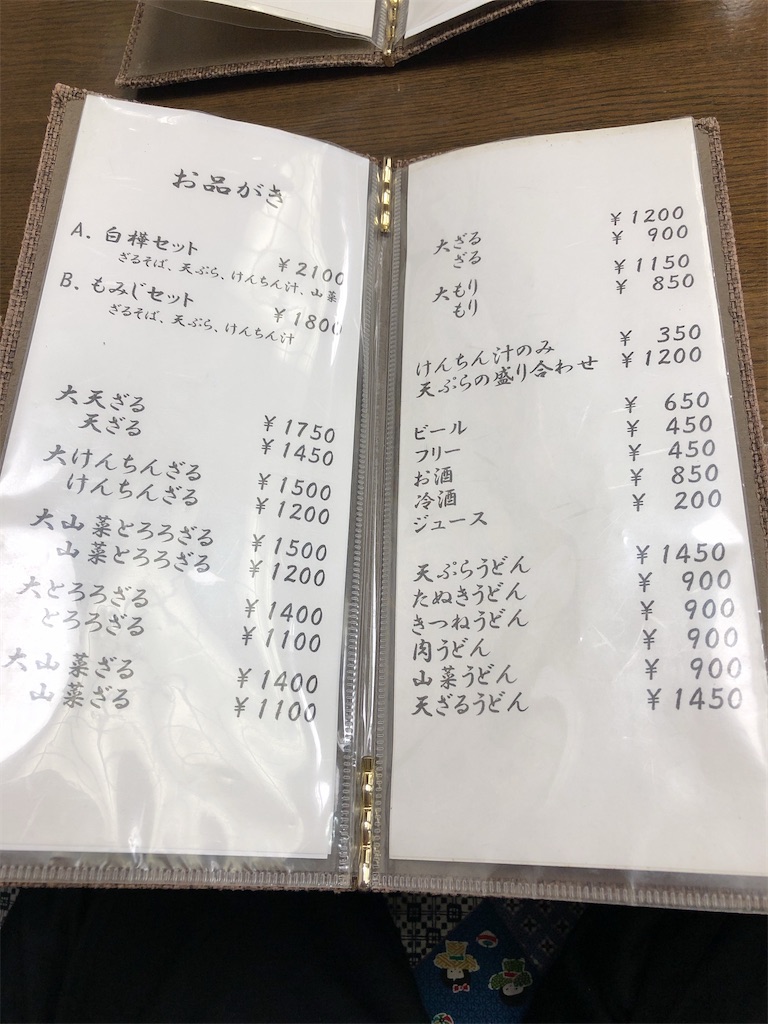 お品がき
A. 白樺セット ¥2100
ざるそば、天ぷら、けんちん汁、山菜
B. もみじセット ¥1800
ざるそば、天ぷら、けんちん汁
大天ざる ¥1750
天ざる ¥1450
大けんちんざる ¥1500
けんちんざる ¥1200
大山菜とろろざる ¥1500
山菜とろろざる ¥1200
大とろろざる ¥1400
とろろざる ¥1100
大山菜ざる ¥1400
山菜ざる ¥1100
大ざる ¥1200
ざる ¥900
大もり ¥1150
もり ¥850
けんちん汁のみ ¥350
天ぷらの盛り合わせ ¥1200
ビール ¥650
フリー ¥450
お酒 ¥450
冷酒 ¥850
ジュース ¥200
天ぷらうどん ¥1450
たぬきうどん ¥900
きつねうどん ¥900
肉うどん ¥900
山菜うどん ¥900
天ざるうどん ¥1450